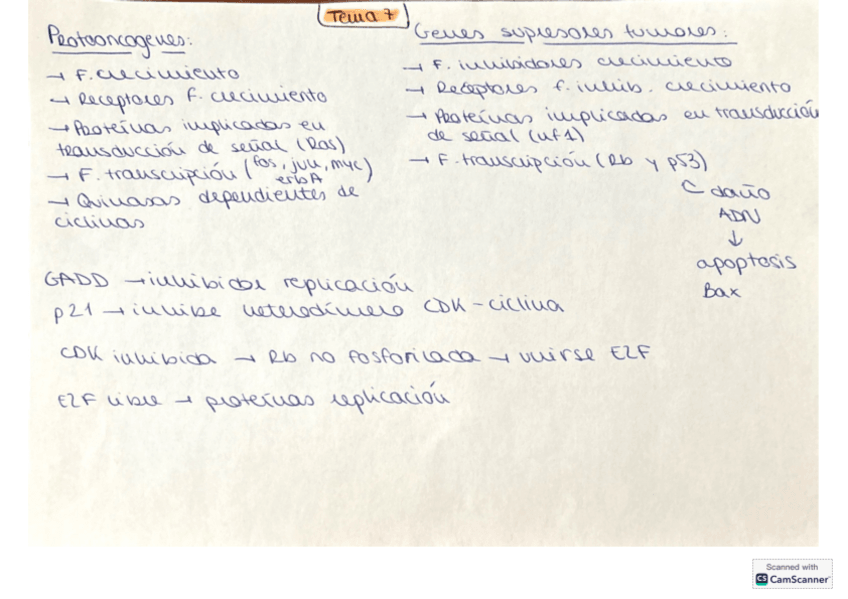 Tema 7
Protooncogenes:
→ F. crecimiento
→ Receptores F. crecimiento
→ Proteínas implicadas en
transducción de señal (Ras)
→ F. transcripción (fos, jun, myc
erbA)
→ Quinasas dependientes de
ciclinas
Genes supresores tumores:
→ F. inhibidores crecimiento
→ Receptores f. inhib. crecimiento
→ Proteínas implicadas en transducción
de señal (nf1)
→ F. transcripción (Rb y p53)
daño
ADN
↓
apoptosis
Bax
GADD → inhibidor replicación
p21 → inhibe heterodímero CDK-ciclina
CDK inhibida → Rb no fosforilada → unirse E2F
E2F libre → proteínas replicación
Scanned with
CS CamScanner